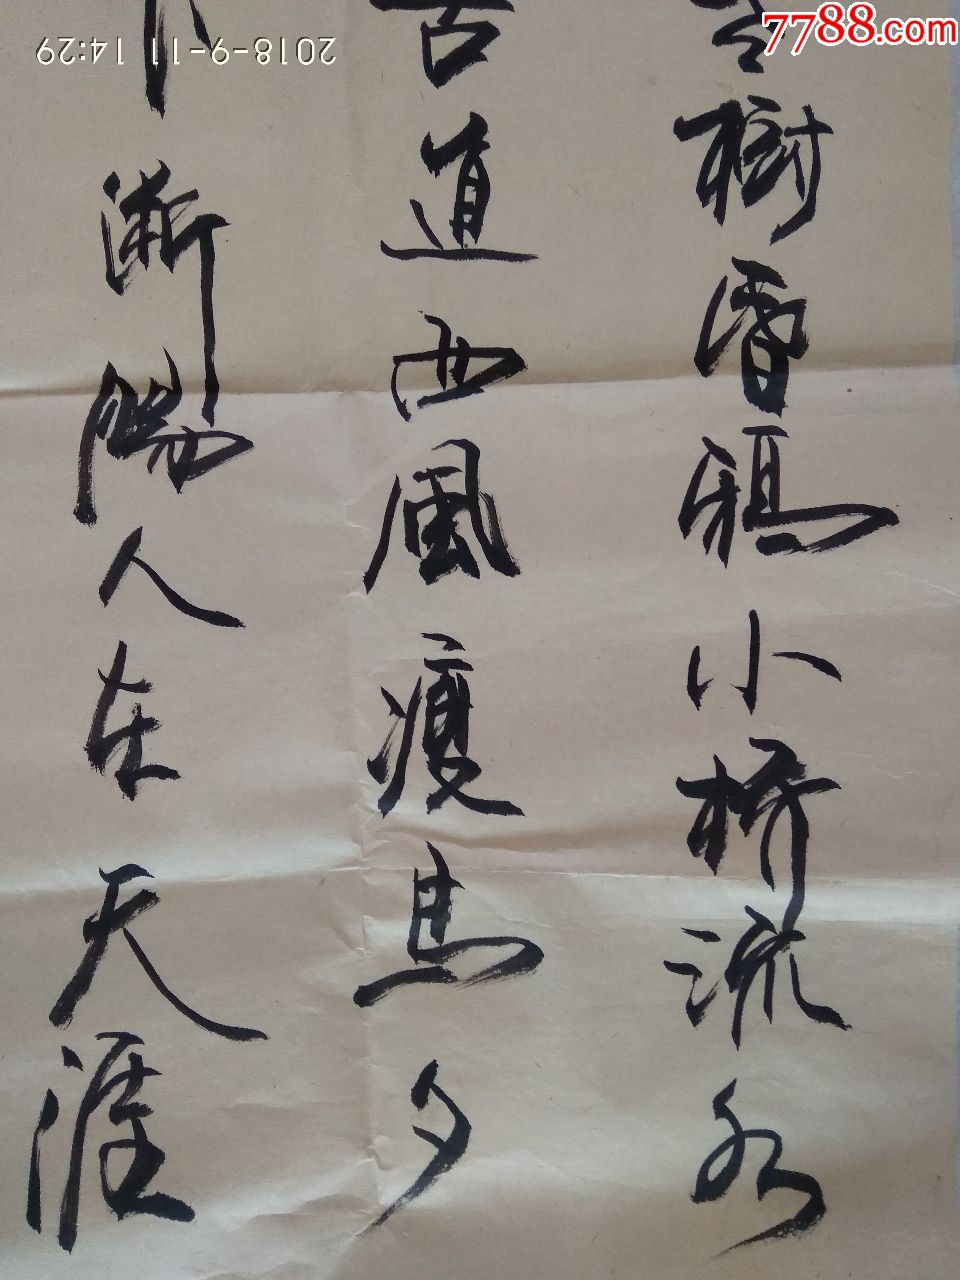 7788.com
2018-9-11 14:29
樹昏鴉小桥流水
古道西風瘦馬夕
下断腸人在天涯